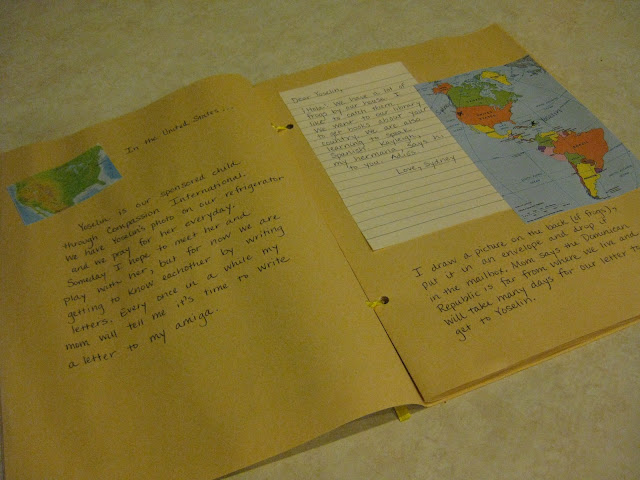 In the United States...
Yoselin is our sponsored child
through Compassion International.
We have Yoselin's photo on our refrigerator
and we pray for her everyday.
Someday I hope to meet her and
play with her, but for now we are
getting to know eachother by writing
letters. Every once in a while my
mom will tell me it's time to write
a letter to my amiga.
Dear Yoselin,
Hola! We have a lot of
frogs by our house. I
like to catch them.
We went to our library
to get books about your
country. We are also
learning to speak
Spanish. Kayleigh,
my hermana, says hi
to you. Adios
Love, Sydney
I draw a picture on the back (of frogs),
put it in an envelope and drop it
in the mailbox. Mom says the Dominican
Republic is far from where we live and
will take many days for our letter to
get to Yoselin.